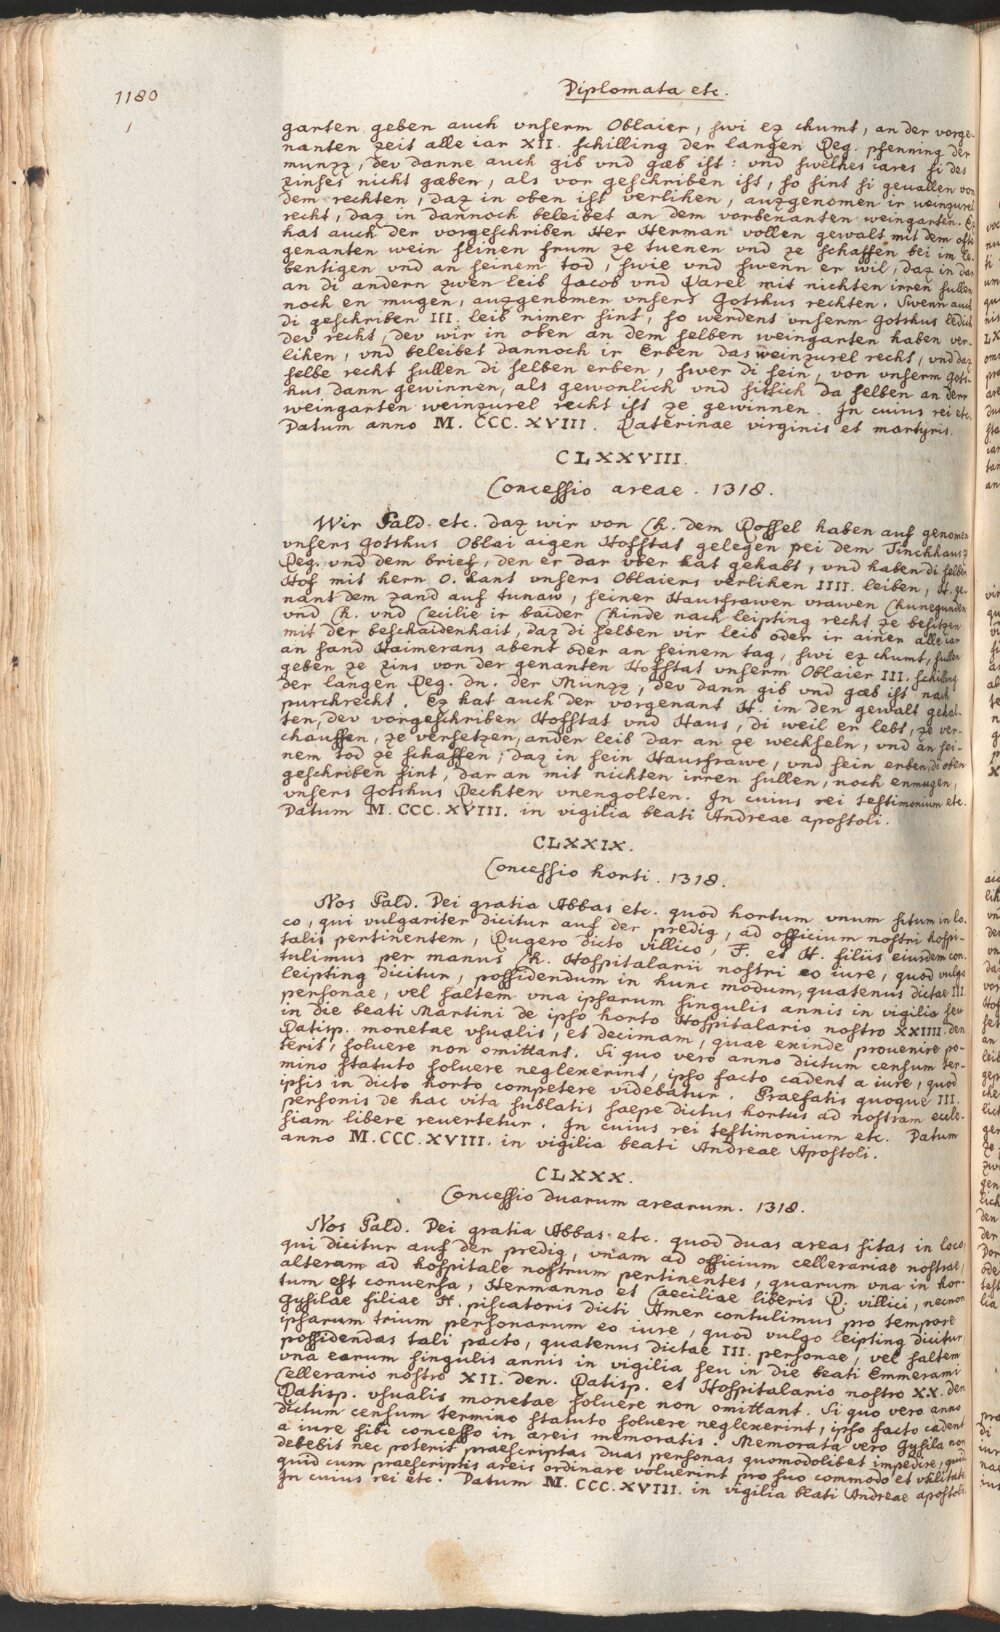 1180
Diplomata etc.
garten geben auch vnserm Oblaier, swi ez chumt, an der vorge-
nanten zeit alle iar XII. schilling der langen Reg. pfenning der
munzz, dev danne auch gib vnd gæb ist: vnd swelhes iares si des
zinses nicht gæben, als vor geschriben ist, so sint si geuallen von
dem rechten, daz in oben ist verlihen, auzgenomen ir weinzurel
recht, daz in dannoch beleibet an dem vorbenanten weingarten. Ez
hat auch der vorgeschriben Her Herman vollen gewalt mit dem oft
genanten wein seinen frum ze tuenen vnd ze schaffen bei im le-
bentigen vnd an seinem tod, swie vnd swenn er wil, daz in dar
an di andern zwen leib Jacob vnd Karel mit nichten irren sullen
noch en mugen, auzgenomen vnsers Gotshus rechten. Swenn auch
di geschriben III. leib nimer sint, so werdent vnserm Gotshus ledich
dev recht, dev wir in oben an dem selben weingarten haben ver-
lihen, vnd beleibet dannoch ir Erben das weinzurel recht, vnd daz
selbe recht sullen di selben erben, swer di sein, von vnserm Gots-
hus dann gewinnen, als gewonlich vnd sitlich da selben an derr
weingarten weinzurel recht ist ze gewinnen. In cuius rei etc.
Datum anno M. CCC. XVIII. Katerinae virginis et martyris.
CLXXVIII.
Concessio areae. 1318.
Wir Bald. etc. daz wir von Ch. dem Rossel haben auf genomen
vnsers Gotshus Oblai aigen Hofstat gelegen pei dem Tinckhaus ze
Reg. vnd dem brief, den er dar vber hat gehabt, vnd haben di selben
Hof mit hern O. hant vnsers Oblaiers verlihen IIII. leiben, H. ge-
nant dem zand auf tunaw, seiner Hausfrawen vrawen Chunegunden
vnd Ch. vnd Cecilie ir baider Chinde nach leipting recht ze besitzen
mit der beschaidenhait, daz di selben vir leib oder ir ainer alle iar
an sand Haimerans abent oder an seinem tag, swi ez chumt, sullen
geben ze zins von der genanten Hofstat vnserm Oblaier III. schilling
der langen Reg. dn. der Münzz, dev dann gib vnd gæb ist nach
purchrecht. Ez hat auch der vorgenant H. im den gewalt gehal-
ten, dev vorgeschriben Hofstat vnd Haus, di weil er lebt, ze ver-
chauffen, ze versetzen, ander leib dar an ze wechseln, vnd an sei-
nem tod ze schaffen, daz in sein Hausfrawe, vnd sein erben, di oben
geschriben sint, dar an mit nichten irren sullen, noch enmugen,
vnsers Gotshus Rechten vnengolten. In cuius rei testimonium etc.
Datum M. CCC. XVIII. in vigilia beati Andreae apostoli.
CLXXIX.
Concessio horti. 1318.
Nos Bald. Dei gratia Abbas etc. quod hortum vnum situm in lo-
co, qui vulgariter dicitur auf der predig, ad officium nostri hospi-
talis pertinentem, Rugero dicto villico, F. et H. filiis eiusdem con-
tulimus per manus Ch. Hospitalarii nostri eo iure, quod vulgo
leipting dicitur, possidendum in hunc modum, quatenus dictae III.
personae, vel saltem vna ipsarum singulis annis in vigilia seu
in die beati Martini de ipso horto Hospitalario nostro XXIIII. den.
Ratisp. monetae vsualis, et decimam, quae exinde prouenire po-
terit, soluere non omittant. Si quo vero anno dictum censum ter-
mino statuto soluere neglexerint, ipso facto cadent a iure, quod
ipsis in dicto horto competere videbatur. Praefatis quoque III.
personis de hac vita sublatis saepe dictus hortus ad nostram eccle-
siam libere reuertetur. In cuius rei testimonium etc. Datum
anno M. CCC. XVIII. in vigilia beati Andreae Apostoli.
CLXXX.
Concessio duarum arearum. 1318.
Nos Bald. Dei gratia Abbas etc. quod duas areas sitas in loco,
qui dicitur auf der predig, vnam ad officium cellerariae nostrae,
alteram ad hospitale nostrum pertinentes, quarum vna in hor-
tum est conuersa, Hermanno et Caeciliae liberis R. villici, necnon
Gysilae filiae H. piscatoris dicti Amer contulimus pro tempore
ipsarum trium personarum eo iure, quod vulgo leipting dicitur
possidendas tali pacto, quatenus dictae III. personae, vel saltem
vna earum singulis annis in vigilia seu in die beati Emmerami
Cellerario nostro XII. den. Ratisp. et Hospitalario nostro XX. den
Ratisp. vsualis monetae soluere non omittant. Si quo vero anno
dictum censum termino statuto soluere neglexerint, ipso facto cadent
a iure sibi concesso in areis memoratis. Memorata vero Gysila non
debebit nec poterit praescriptas duas personas quomodolibet impedire, quid
quid cum praescriptis areis ordinare voluerint pro suo commodo et vtilitate
In cuius rei etc. Datum M. CCC. XVIII. in vigilia beati Andreae apostoli